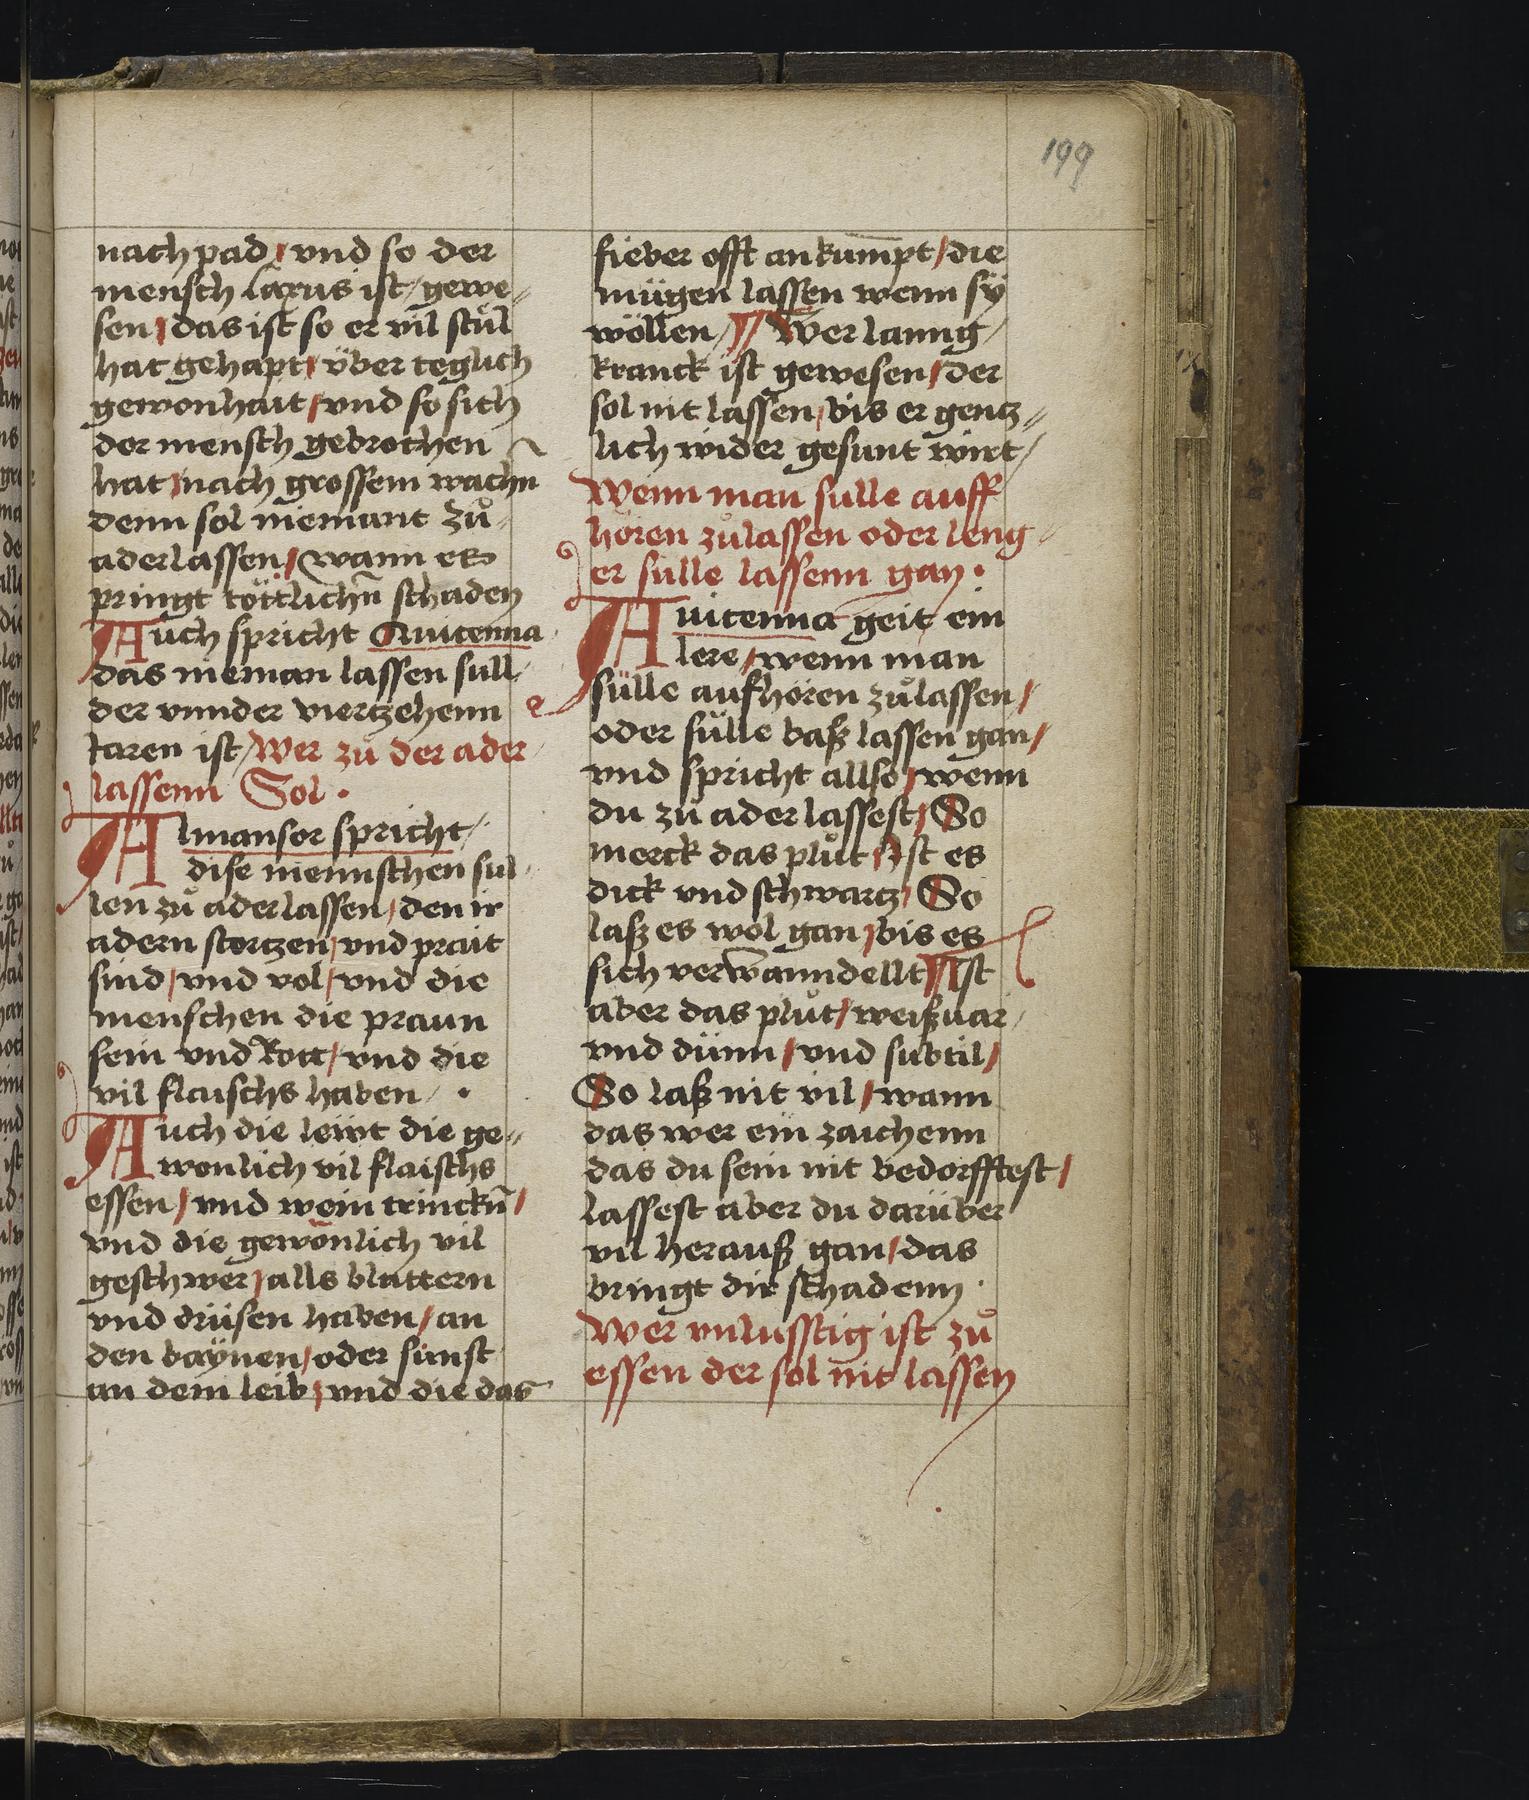 199
nach pad / vnd so der
mensch laxus ist / gewe=
sen / das ist so er vil stůl
hat gehapt / v̈ber teglich
gewonhait / vnd so sich
der mensch gebrochen
hat / nach grossem wachn̄
denn sol niemant zů=
aderlassen / wann es
pringt töttlichn̄ schaden
Auch spricht Auicenna
das nieman lassen sull
der vnnder viertzehenn
Jaren ist / Wer zů der ader
lassenn Sol ·
Almansor spricht /
dise mennschen sul=
len zů aderlassen / den ir
adern stortzen / vnd prait
sind / vnd vol / vnd die
menschen die praun
sein vnd Rott / vnd die
vil flaischs haben / ·
Auch die leẅt die ge=
wonlich vil flaischs
essen / vnd wein trinckn̄ /
vnd die gewonlich vil
geschwer / alls blattern
vnd drüsen haben / an
den baÿnen / oder sünst
an dem leib / vnd die das
fieber offt ankumpt / die
mügen lassen wenn sÿ
wöllen / ¶ Wer lanng
kranck ist gewesen / der
sol nit lassen / bis er gentz=
lich wider gesunt wirt /
Wenn man sulle auff
hören zůlassen oder leng=
er sulle lassenn gan ·
Auicenna geit ein
lere / wenn man
sülle aufhören zůlassen /
oder sülle baß lassen gan /
vnd spricht allso / wenn
du zů aderlassest / So
merck das plůt / Ist es
dick vnd schwartz / So
laß es wol gan / bis es
sich verwanndellt ¶ Ist
aber das plůt / weißuar /
vnd dünn / vnd subtil /
So laß nit vil / wann
das wer ein zaichenn
das du sein nit bedorfftest /
lassest aber du darüber
vil herauß gan / das
bringt dir schadenn ·
Wer vnlusstig ist zů
essen der sol nit lassen